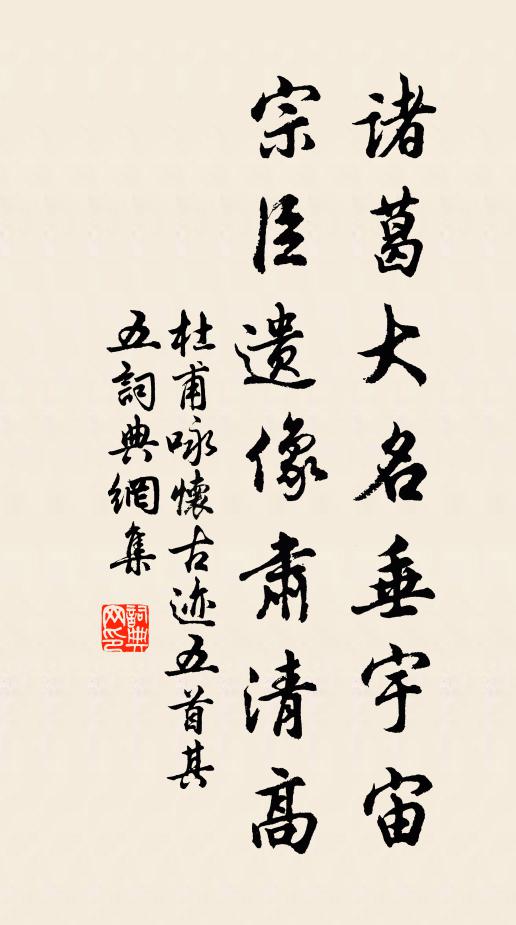 諸葛大名垂宇宙
宗臣遺像肅清高
杜甫咏懷古迹五首其
五詞典網集
詞典网印